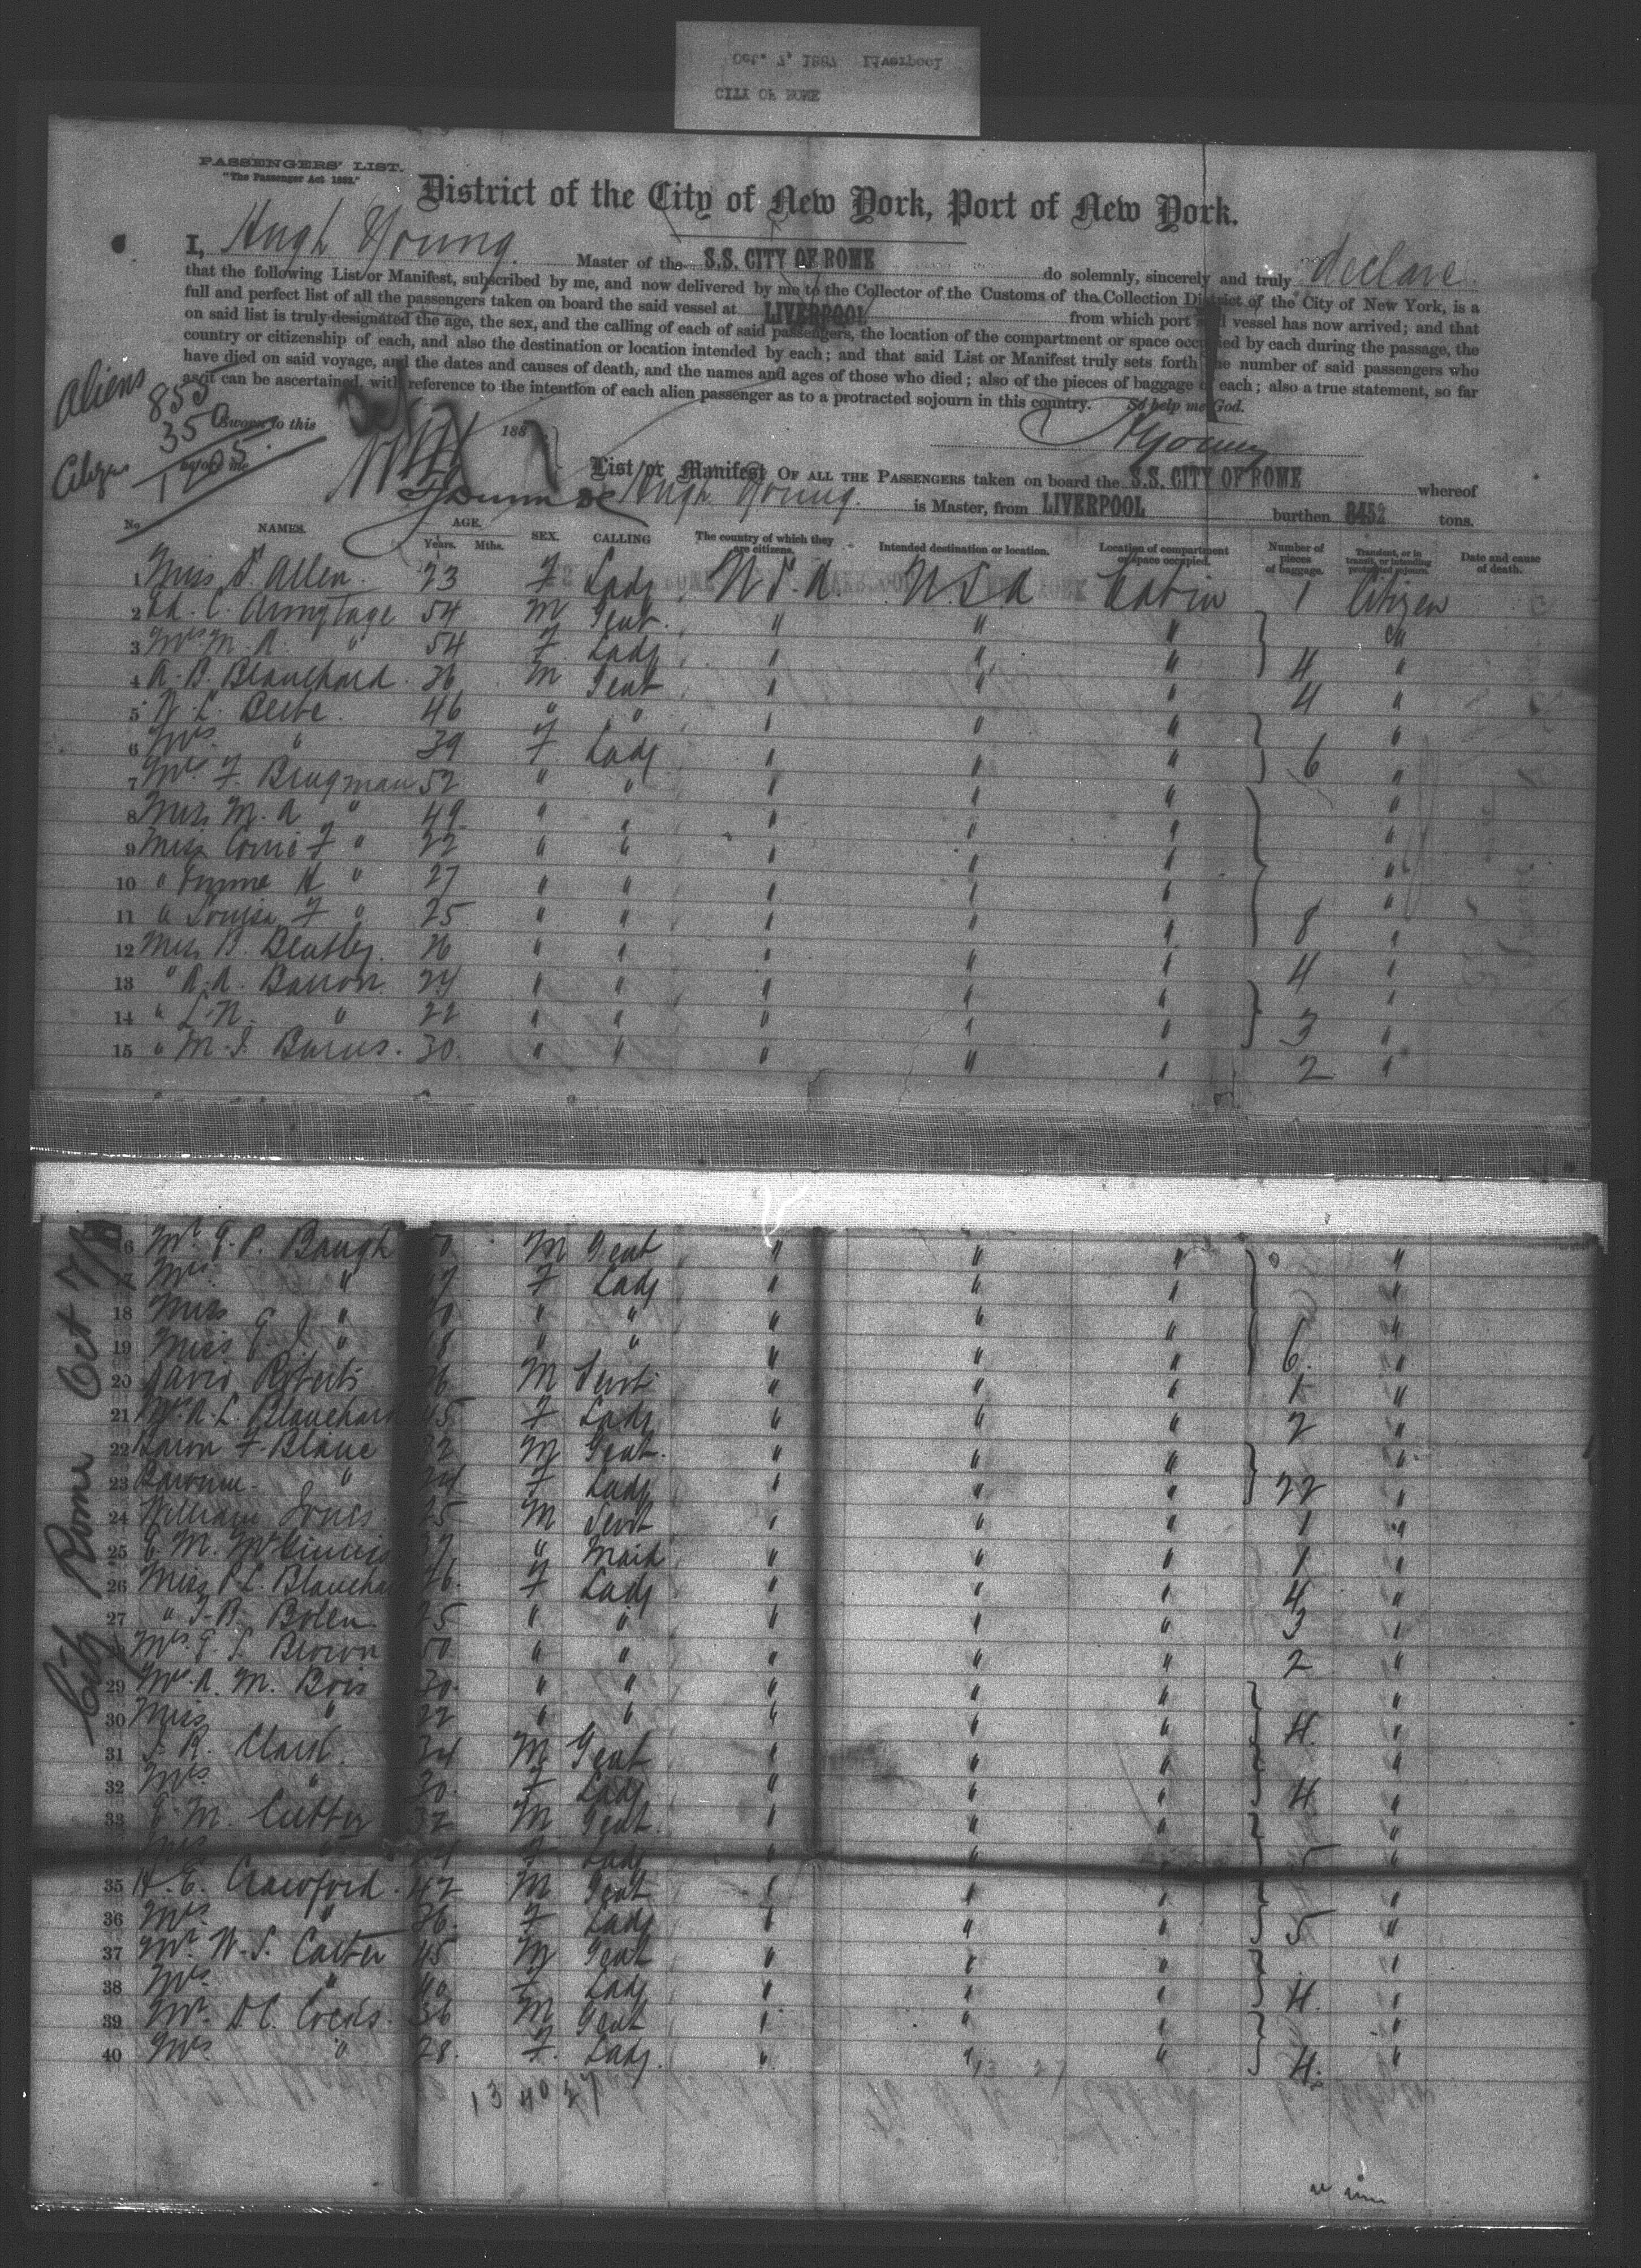 Oct. 7, 1887 Liverpool
CITY OF ROME
PASSENGERS' LIST.
"The Passenger Act 1882."
District of the City of New York, Port of New York.
I, Hugh Young. Master of the S.S. CITY OF ROME do solemnly, sincerely and truly declare
that the following List or Manifest, subscribed by me, and now delivered by me to the Collector of the Customs of the Collection District of the City of New York, is a
full and perfect list of all the passengers taken on board the said vessel at LIVERPOOL from which port said vessel has now arrived; and that
on said list is truly designated the age, the sex, and the calling of each of said passengers, the location of the compartment or space occupied by each during the passage, the
country or citizenship of each, and also the destination or location intended by each; and that said List or Manifest truly sets forth the number of said passengers who
have died on said voyage, and the dates and causes of death, and the names and ages of those who died; also of the pieces of baggage of each; also a true statement, so far
as it can be ascertained, with reference to the intention of each alien passenger as to a protracted sojourn in this country. So help me God.
Aliens 855
350
Sworn to this 188
HYoung
before me
Citizen 1205
List or Manifest OF ALL THE PASSENGERS taken on board the S.S. CITY OF ROME whereof
Hugh Young. is Master, from LIVERPOOL burthen 8452 tons.
No. NAMES. AGE. Years. Mths. SEX. CALLING The country of which they are citizens. Intended destination or location. Location of compartment or space occupied. Number of pieces of baggage. Transient, or in transit, or intending protracted sojourn. Date and cause of death.
1 Miss S. Allen. 23 F Lady U S. A. U.S.A Cabin 1 Citizen
2 Ed. C. Armytage 54 M Gent. " " " "
3 Mrs M. A. " 54 F Lady " " " 4 "
4 A. B. Blanchard. 36 M Gent " " " 4 "
5 N. L. Beebe. 46 " " " " " "
6 Mrs. " 39 F Lady " " " 6 "
7 Mrs F Brugman 52 " " " " " "
8 Miss M. A " 49 " " " " " "
9 Miss F " 22 " " " " " "
10 " Emma H " 27 " " " " " "
11 " Louisa F " 25 " " " " " 8 "
12 Miss B. 26 " " " " " 4 "
13 " A. A. Barron. 24 " " " " " "
14 " L. N. " 22 " " " " " 3 "
15 " M. J. 30. " " " " " 2 "
City Rome Oct 7/
16 Mr G. P. Baugh M Gent " " " "
17 Mrs. " F Lady " " " "
18 Miss " " " " " " "
19 Miss " " " " " " 6. "
20 David Roberts 26 M Servt " " " 1 "
21 Mrs A. L. Blanchard 45 F Lady " " " 2 "
22 Baron F. Blanc M Gent. " " " "
23 Baronne. " 24 F Lady " " " 22 "
24 William Jones. 25 M Servt " " " 1 "
25 " Maid " " " 1 "
26 Miss P. L. Blanchard 26. F Lady " " " 4 "
27 " J. B. Bolen 25 " " " " " 3 "
28 Mrs. G. S. Brown 50 " " " " " 2 "
29 Mrs. A. M. Bois 30. " " " " " "
30 Miss " 22 " " " " " 4. "
31 J. R. Clark. 34 M Gent " " " "
32 Mrs " 30. F Lady " " " 4 "
33 G. M. Cutter 32 M Gent. " " " "
Mrs " 24 F Lady " " " 5 "
35 H. E. Crawford. 42 M Gent " " " "
36 Mrs. " 36. F Lady " " " 5 "
37 Mr W. S. Carter 45 M Gent " " " "
38 Mrs. " 40 F Lady " " " 4. "
39 Mr. 36 M Gent " " " "
40 Mrs. " 28. F. Lady. " " " 4. "
13 40 27
13 27